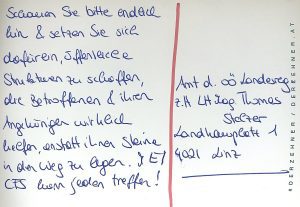 Schauen Sie bitte endlich
hin & setzen Sie sich
dafür ein, öffentliche
Strukturen zu schaffen,
die Betroffenen & ihren
Angehörigen wirklich
helfen, anstatt ihnen Steine
in den Weg zu legen.
CFS kann jeden treffen!
Amt d. OÖ Landesreg
z.H LH Mag. Thomas
Stelzer
Landhausplatz 1
4021 Linz
#DERZEHNER / DERZEHNER.AT